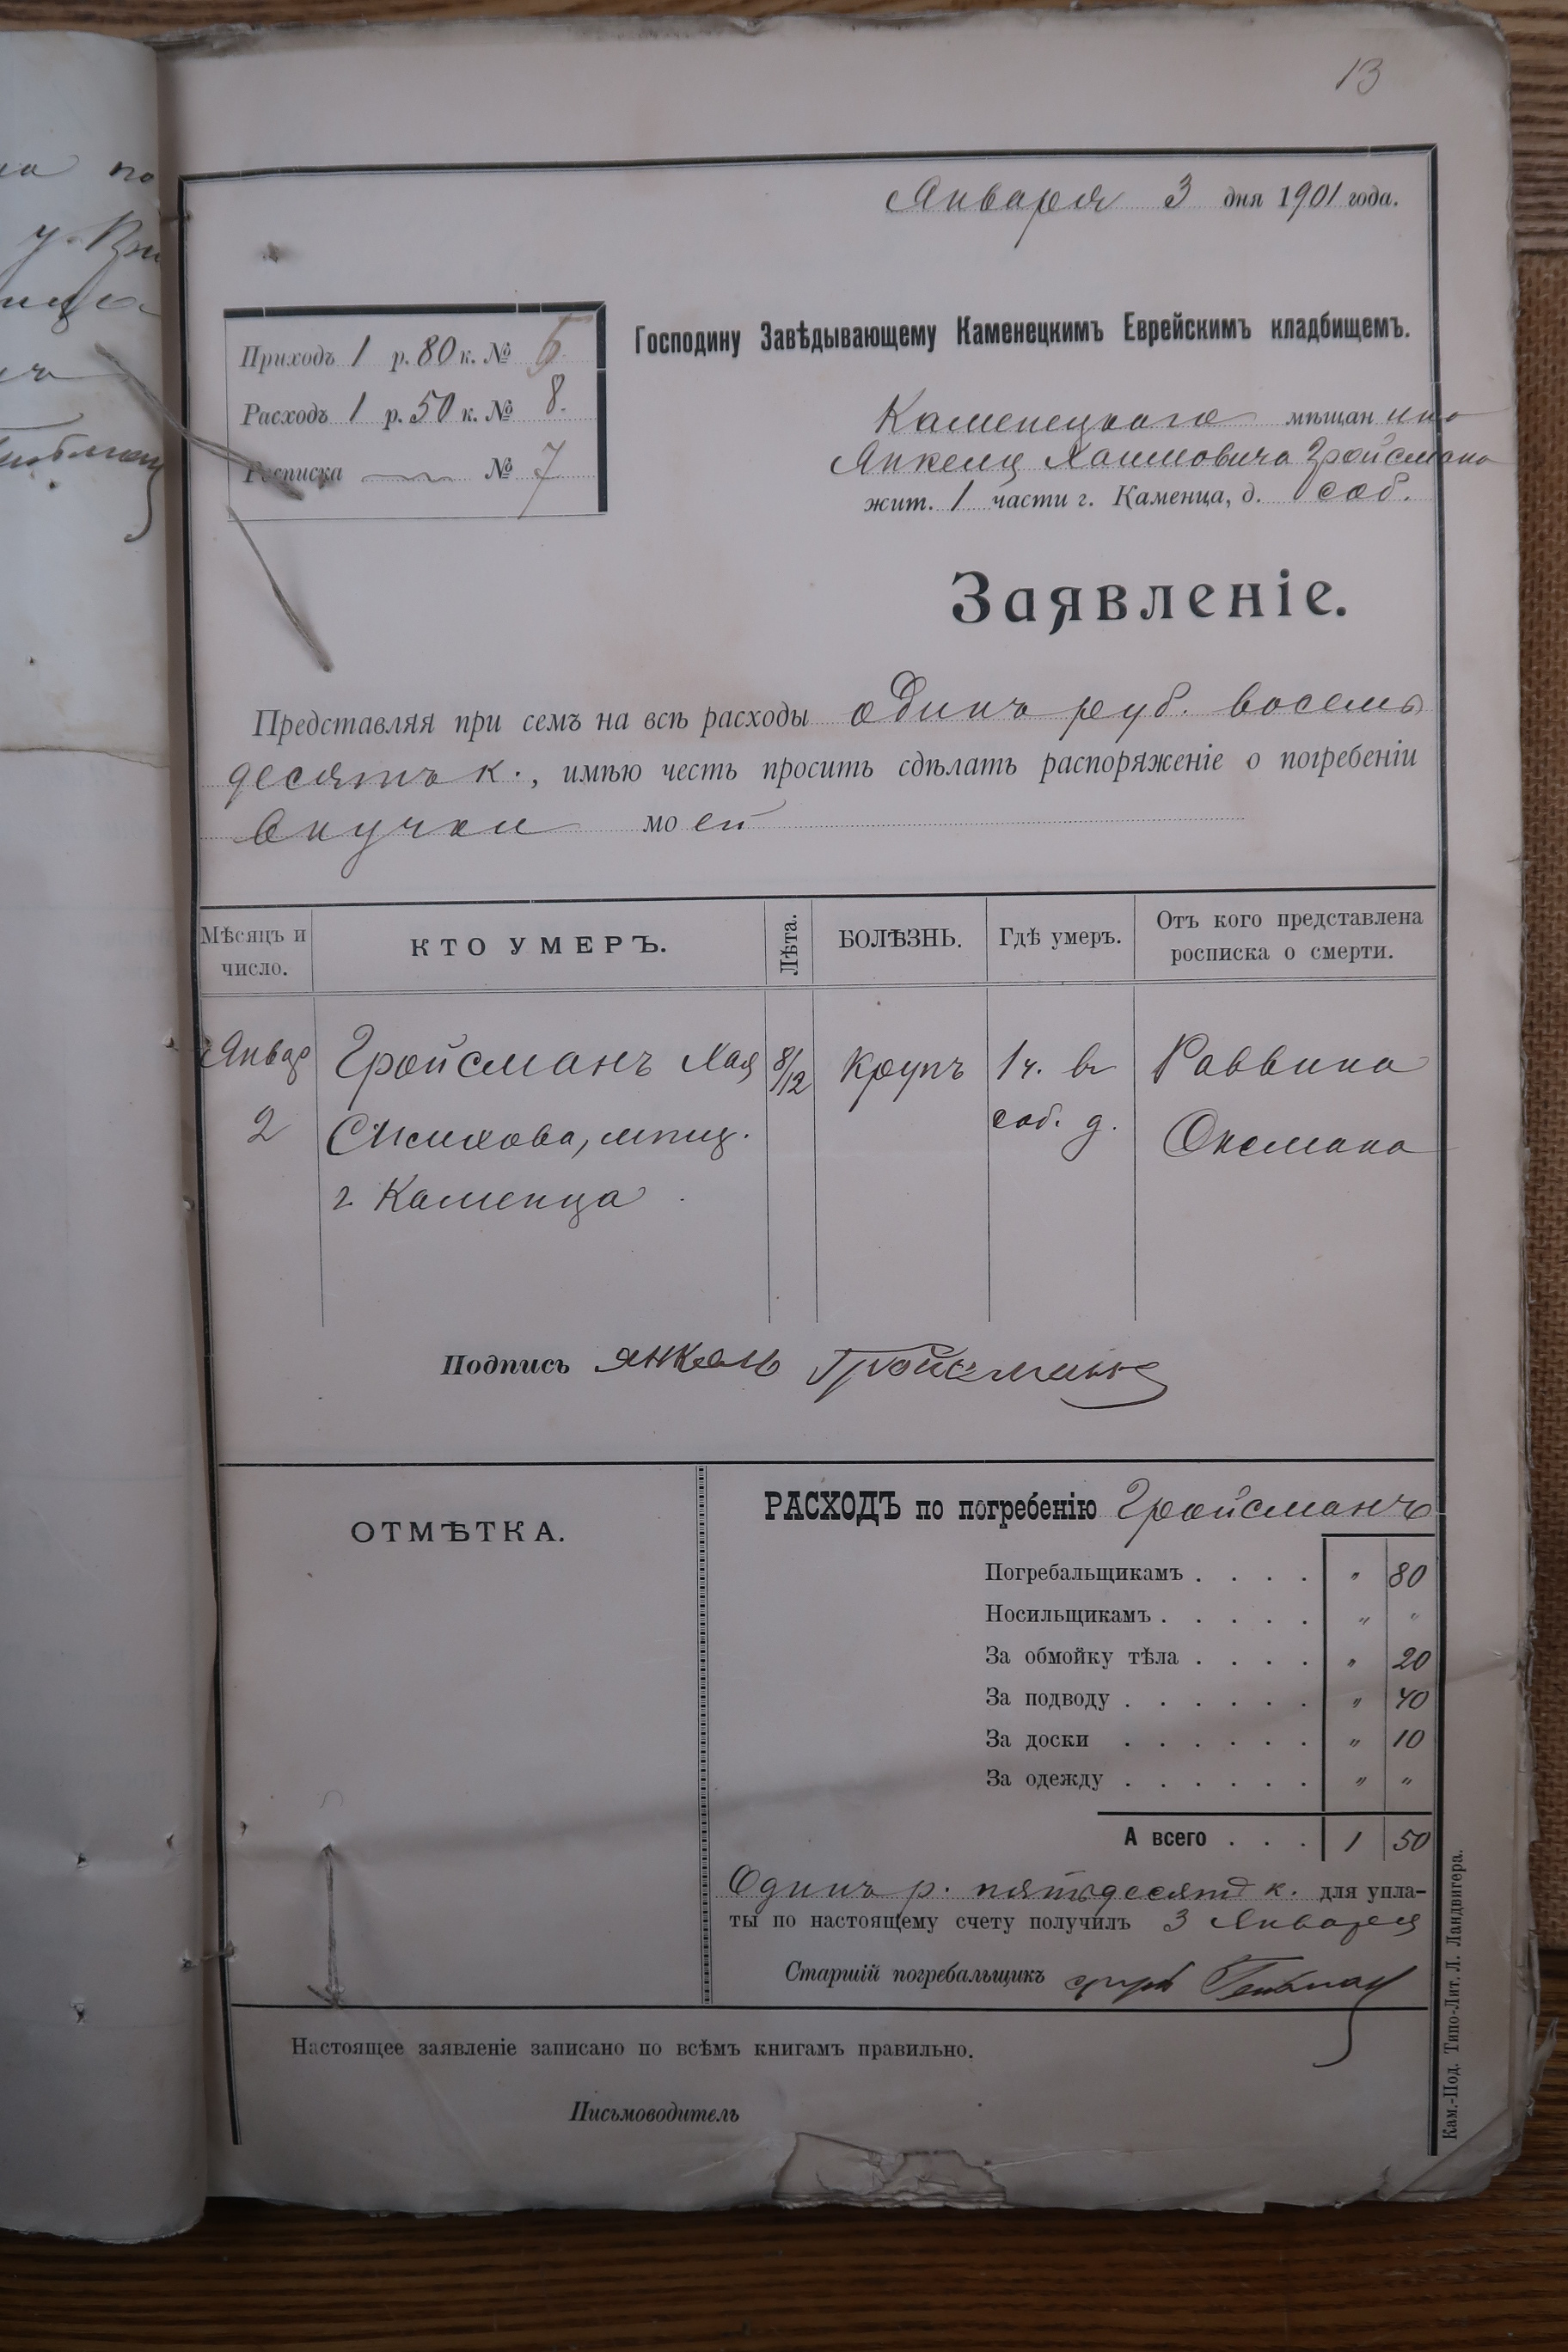 13
Января 3 дня 1901 года.
Приходъ 1 р. 80 к. № 6
Расходъ 1 р. 50 к. № 8.
Росписка № 7
Господину Завѣдывающему Каменецкимъ Еврейскимъ кладбищемъ.
Каменецкаго мѣщанина
Янкеля Хаимовича Гройсмана
жит. 1 части г. Каменца, д. соб.
Заявленіе.
Представляя при семъ на всѣ расходы одинъ руб. восемь
десятъ к., имѣю честь просить сдѣлать распоряженіе о погребеніи
внучки моей
Мѣсяцъ и число.
КТО УМЕРЪ.
Лѣта.
БОЛѢЗНЬ.
Гдѣ умеръ.
Отъ кого представлена росписка о смерти.
Январ Гройсманъ Хая 8/12 Крупъ 1 ч. въ Раввина
2 мѣщ. соб. д. Оксмана
г. Каменца
Подпись Янкель Гройсманъ
ОТМѢТКА.
РАСХОДЪ по погребенію Гройсманъ
Погребальщикамъ . . . . " 80
Носильщикамъ . . . . . " "
За обмойку тѣла . . . . " 20
За подводу . . . . . . " 40
За доски . . . . . . " 10
За одежду . . . . . . " "
А всего . . . 1 50
Одинъ р. пятьдесятъ к. для упла-
ты по настоящему счету получилъ 3 Января
Старшій погребальщикъ
Настоящее заявленіе записано по всѣмъ книгамъ правильно.
Письмоводитель
Кам.-Под. Типо-Лит. Л. Ландвигера.